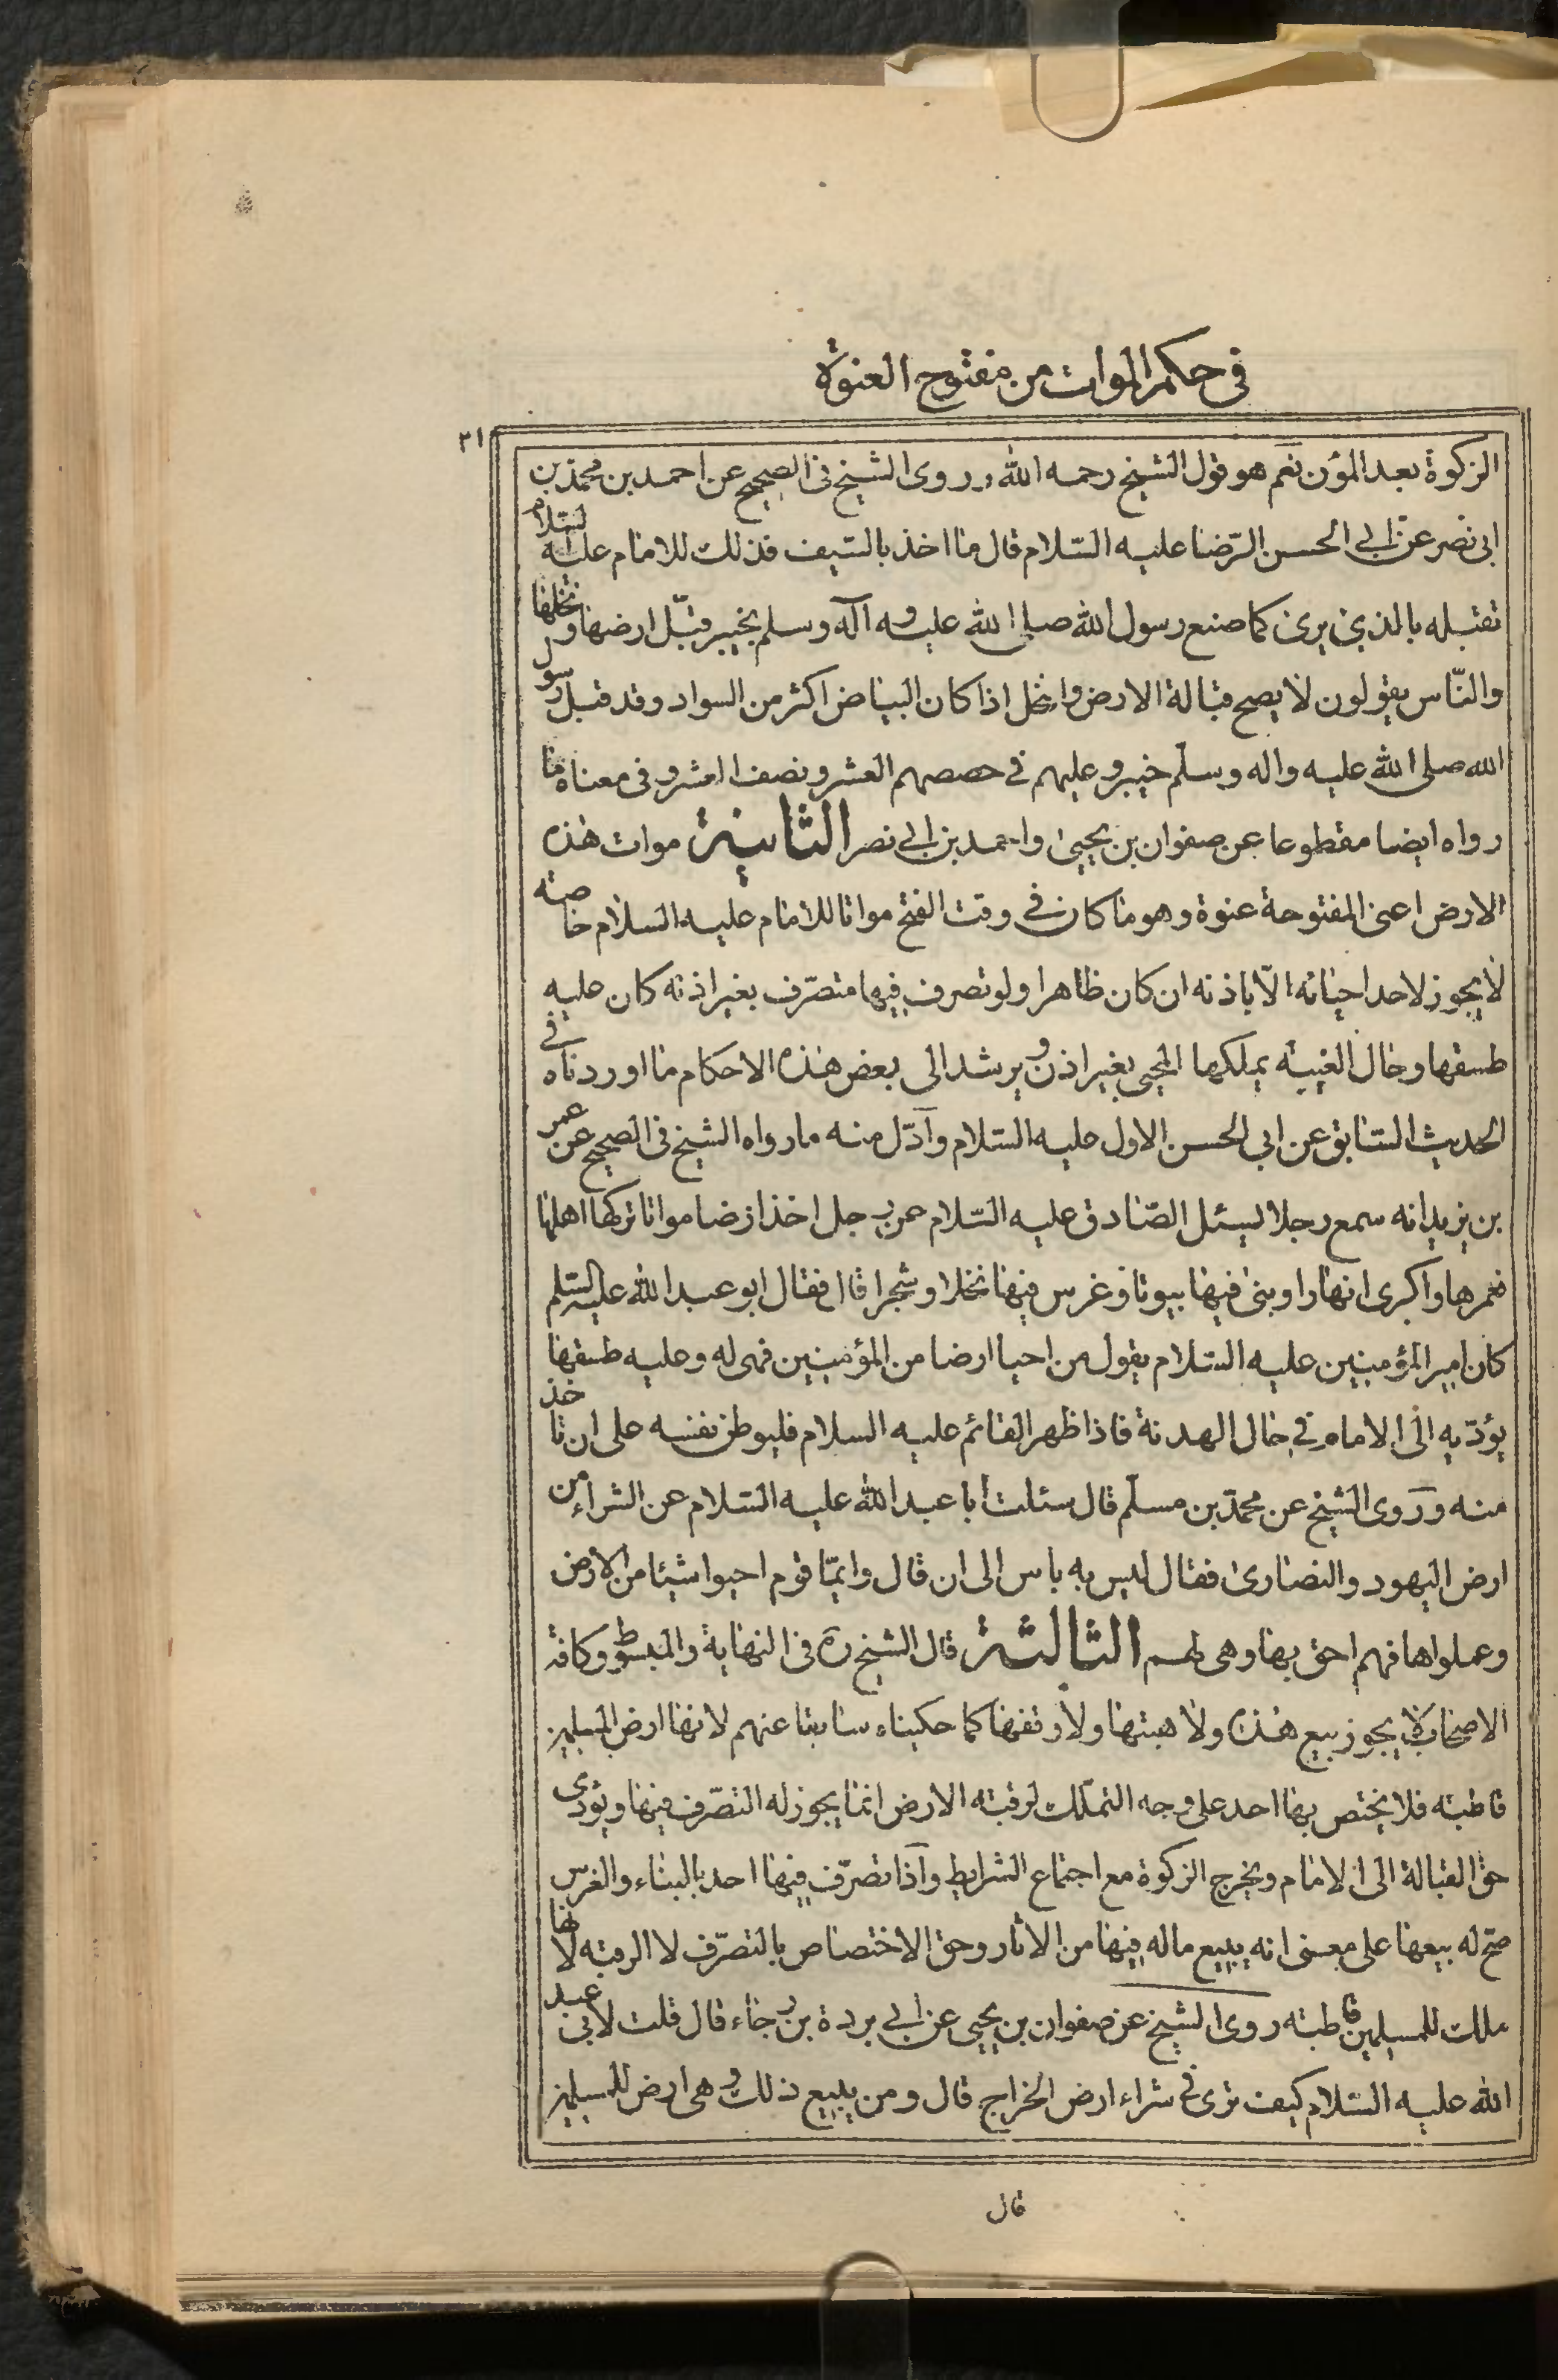 في حكم الموات من مفتوح العنوة
٣١
الزكوة بعد المؤن نعم هو قول الشيخ رحمه الله وروى الشيخ في الصحيح عن احمد بن محمد بن
ابي نصر عن ابي الحسن الرّضا عليه السّلام قال ما اخذ بالسّيف فذلك للامام عليه السّلام
تقبله بالذي يرى كما صنع رسول الله صلى الله عليه وآله وسلم بخيبر قبّل ارضها ونخلها
والنّاس يقولون لا يصح قبالة الارض والنخل اذا كان البياض اكثر من السواد وقد قبل رسول
الله صلى الله عليه واله وسلّم خيبر وعليهم في حصصهم العشر ونصف العشر وفي معناه ما
رواه ايضا مقطوعا عن صفوان بن يحيى واحمد بن ابي نصر الثانية موات هذه
الارض اعنى المفتوحة عنوة وهو ما كان في وقت الفتح مواتا للامام عليه السلام خاصته
لا يجوز لاحد احيائه الّا باذنه ان كان ظاهرا ولو تصرف فيها متصرّف بغير اذنه كان عليه
طسقها وحال الغيبة يملكها المحيى بغير اذن ويرشد الى بعض هذه الاحكام ما اوردناه في
الحديث السّابق عن ابي الحسن الاول عليه السّلام وآدّل منه ما رواه الشيخ في الصحيح عن عمر
بن يزيد انه سمع رجلا يسئل الصّادق عليه السّلام عن رجل اخذ ارضا مواتا تركها اهلها
فعمرها واكرى انهارا وبنى فيها بيوتا وغرس فيها نخلا وشجرا قال فقال ابو عبد الله عليه السّلم
كان امير المؤمنين عليه السّلام يقول من احيا ارضا من المؤمنين فهى له وعليه طسقها
يؤدّيه الى الامام في حال الهدنة فاذا ظهر القائم عليه السلام فليوطن نفسه على ان تاخذ
منه وروى الشيخ عن محمّد بن مسلّم قال سئلت ابا عبد الله عليه السّلام عن الشراء من
ارض اليهود والنصارى فقال ليس به باس الى ان قال وايمّا قوم احيوا شيئا من الارض
وعملواها فهم احق بها وهي لهم الثالثة قال الشيخ ره في النهاية والمبسوط وكافة
الاصحاب لا يجوز بيع هذه ولا هبتها ولا وقفها كما حكيناه سابقا عنهم لانها ارض المسلمين
قاطبته فلا يختص بها احد على وجه التملّك لرقبته الارض انما يجوز له التصّرف فيها ويؤدى
حق القبالة الى الامام ويخرج الزكوة مع اجتماع الشرايط وآذا تصرّف فيها احد بالبناء والغرس
صحّ له بيعها على معنى انه يبيع ماله فيها من الاثار وحق الاختصاص بالتصرّف لا الرقبه لانها
ملك للمسلمين قاطبته روى الشيخ عن صفوان بن يحيى عن ابي بردة بن رجاء قال قلت لابي عبد
الله عليه السّلام كيف ترى في شراء ارض الخراج قال ومن يبيع ذلك وهي ارض للمسلمين
قال